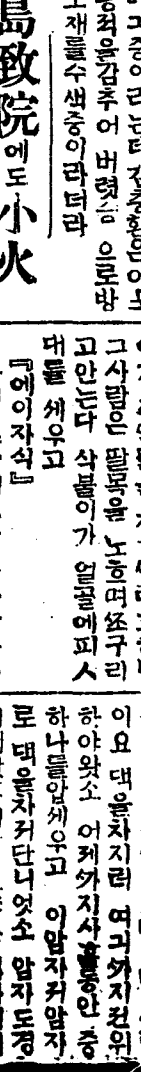 종적을감추어 버렷슴 으로방
재를수색중이라더라
鳥致院에도小火
그사람은 팔목을 노흐며쏘구리
고안는다 삭불이가 얼골에피人
대를 세우고
『에이자식』
이요 댁을차지러 여긔까지전위
하야왓소 어제까지사 동안 중
하나를압세우고 이암자커암자
로 댁을차저단니엇소 암자도경